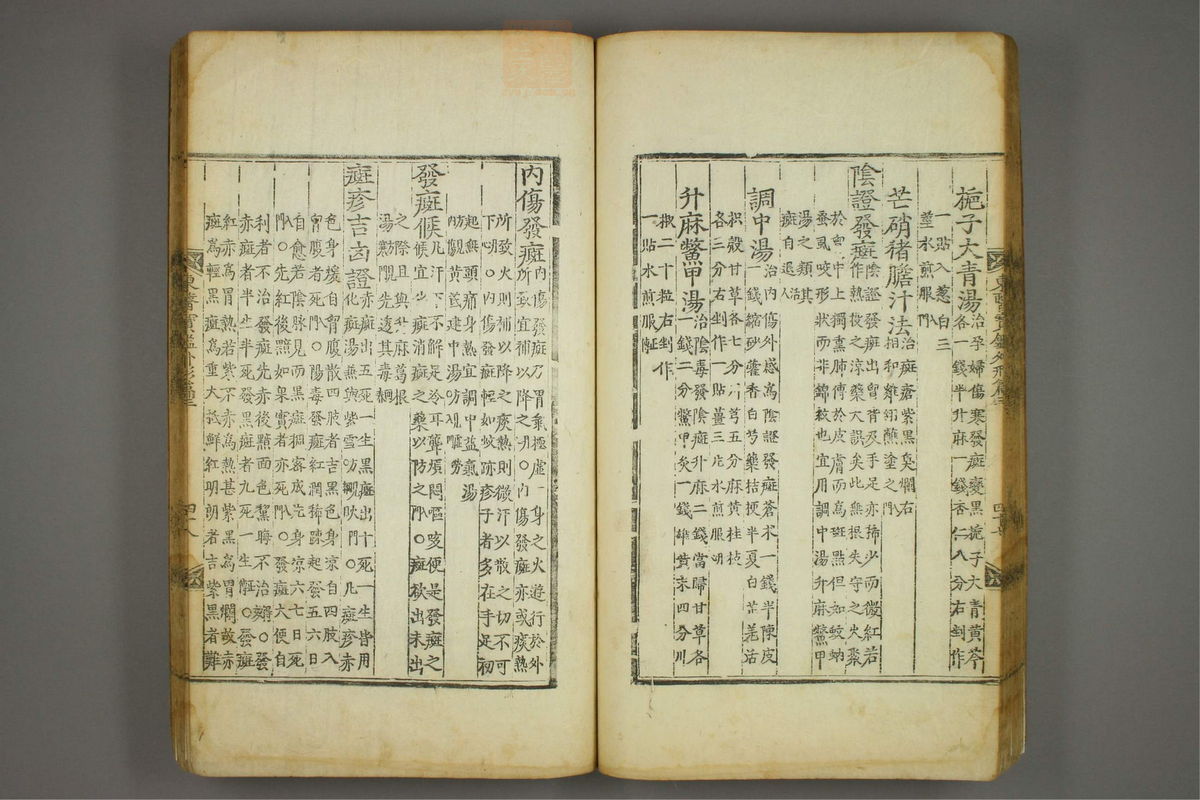 梔子大青湯治孕婦傷寒發斑變黑梔子大青黃芩
各一錢半升麻一錢杏仁八分右剉作
一貼入葱白三
莖水煎服入門
芒硝猪膽汁法治斑瘡紫黑臭爛右
相和硏細蘸塗之入門
陰證發斑陰證發斑出胷背及手足亦稀少而微紅若
作熱投之涼藥大誤矣此無根失守之火聚
於胷中上獨熏肺傳於皮膚而爲斑點但如蚊蚋
蚤虱咬形狀而非錦紋也宜用調中湯升麻鱉甲
湯之類其
斑自退活人
調中湯治內傷外感爲陰證發斑蒼朮一錢半陳皮
一錢縮砂藿香白芍藥桔梗半夏白芷羌活
枳殼甘草各七分川芎五分麻黃桂枝
各三分右剉作一貼薑三片水煎服
升麻鱉甲湯治陰毒發陰斑升麻二錢當歸甘草各
一錢二分鱉甲灸一錢雄黃末四分川
椒二十粒右剉作
一貼水煎服
內傷發斑內傷發斑乃胃氣極虛一身之火遊行於外
所致宜補以降之○內傷發斑亦或痰熱
所致火則補以降之痰熱則微汗以散之切不可
下○內傷發斑輕如蚊跡疹子者多在手足初
起無頭痛身熱宜調中益氣湯
黃芪建中湯
發斑候凡汗下不解足冷耳聾煩悶嘔咳便是發斑之
候宜少 斑消斑之藥以防之○斑欲出未出
之際且與升麻葛根
湯先透其毒
斑疹吉凶證赤斑出五死一生黑斑出十死一生皆用
化斑湯 紫雪 ○凡斑疹赤
色身煖自胷腹散四肢者吉黑色身涼自四肢入
胷腹者死入門○陽毒發斑紅潤稀踈起發五六日
自愈若陰脉見而黑斑稠密成片身涼六七日死
○先紅後黯如果實者亦死○發斑大便自
利者不治發斑先赤後黯面色黧晦不治○發
赤斑者半生半死發黑斑者九死一生○發斑
紅赤爲胃熱若紫不赤爲熱甚紫黑爲胃爛故赤
斑爲輕黑斑爲重大抵鮮紅明朗者吉紫黑者難